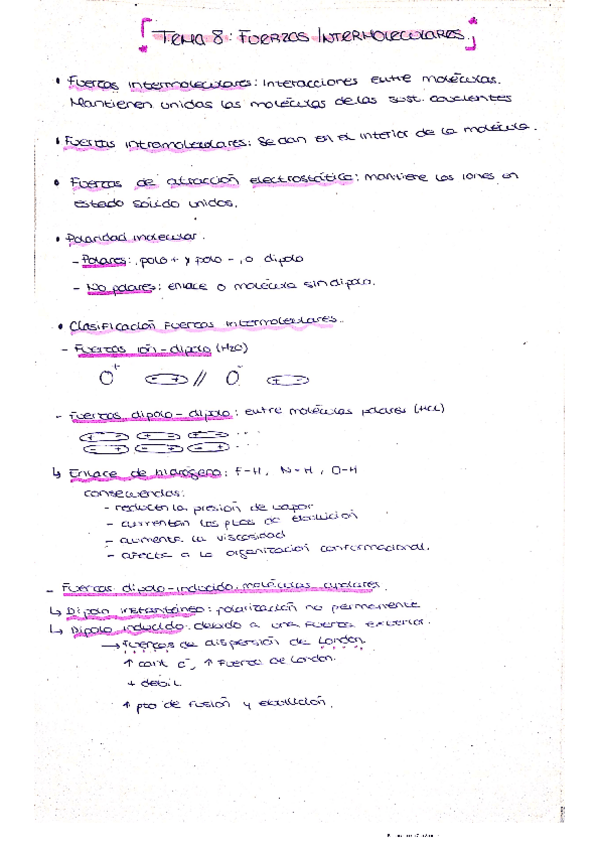 TEMA 8: FUERZAS INTERMOLECULARES.
• Fuerzas intermoleculares: Interacciones entre moléculas.
Mantienen unidas las moléculas de las sust. covalentes
• Fuerzas intramoleculares: Se dan en el interior de la molécula.
• Fuerzas de atracción electrostática: mantiene los iones en
estado sólido unidos.
• Polaridad molecular.
- Polares: polo + y polo -, o dipolo
- No polares: enlace o molécula sin dipolo.
• Clasificación Fuerzas intermoleculares.
- Fuerzas ión-dipolo (H2O)
O+ - + // O- - +
- Fuerzas dipolo-dipolo: entre moléculas polares (HCl)
+ - + - + - ...
- + - + - + ...
↳ Enlace de hidrógeno: F-H, N-H, O-H
consecuencias:
- reducen la presión de vapor
- aumentan los ptos de ebullición
- aumenta la viscosidad
- afecta a la organización conformacional.
- Fuerzas dipolo-inducido: moléculas apolares.
↳ Dipolo instantáneo: polarización no permanente
↳ Dipolo inducido: debido a una fuerza externa.
→ fuerzas de dispersión de London
↑ cant e-, ↑ Fuerza de London.
+ debil
↑ pto de fusión y ebullición.